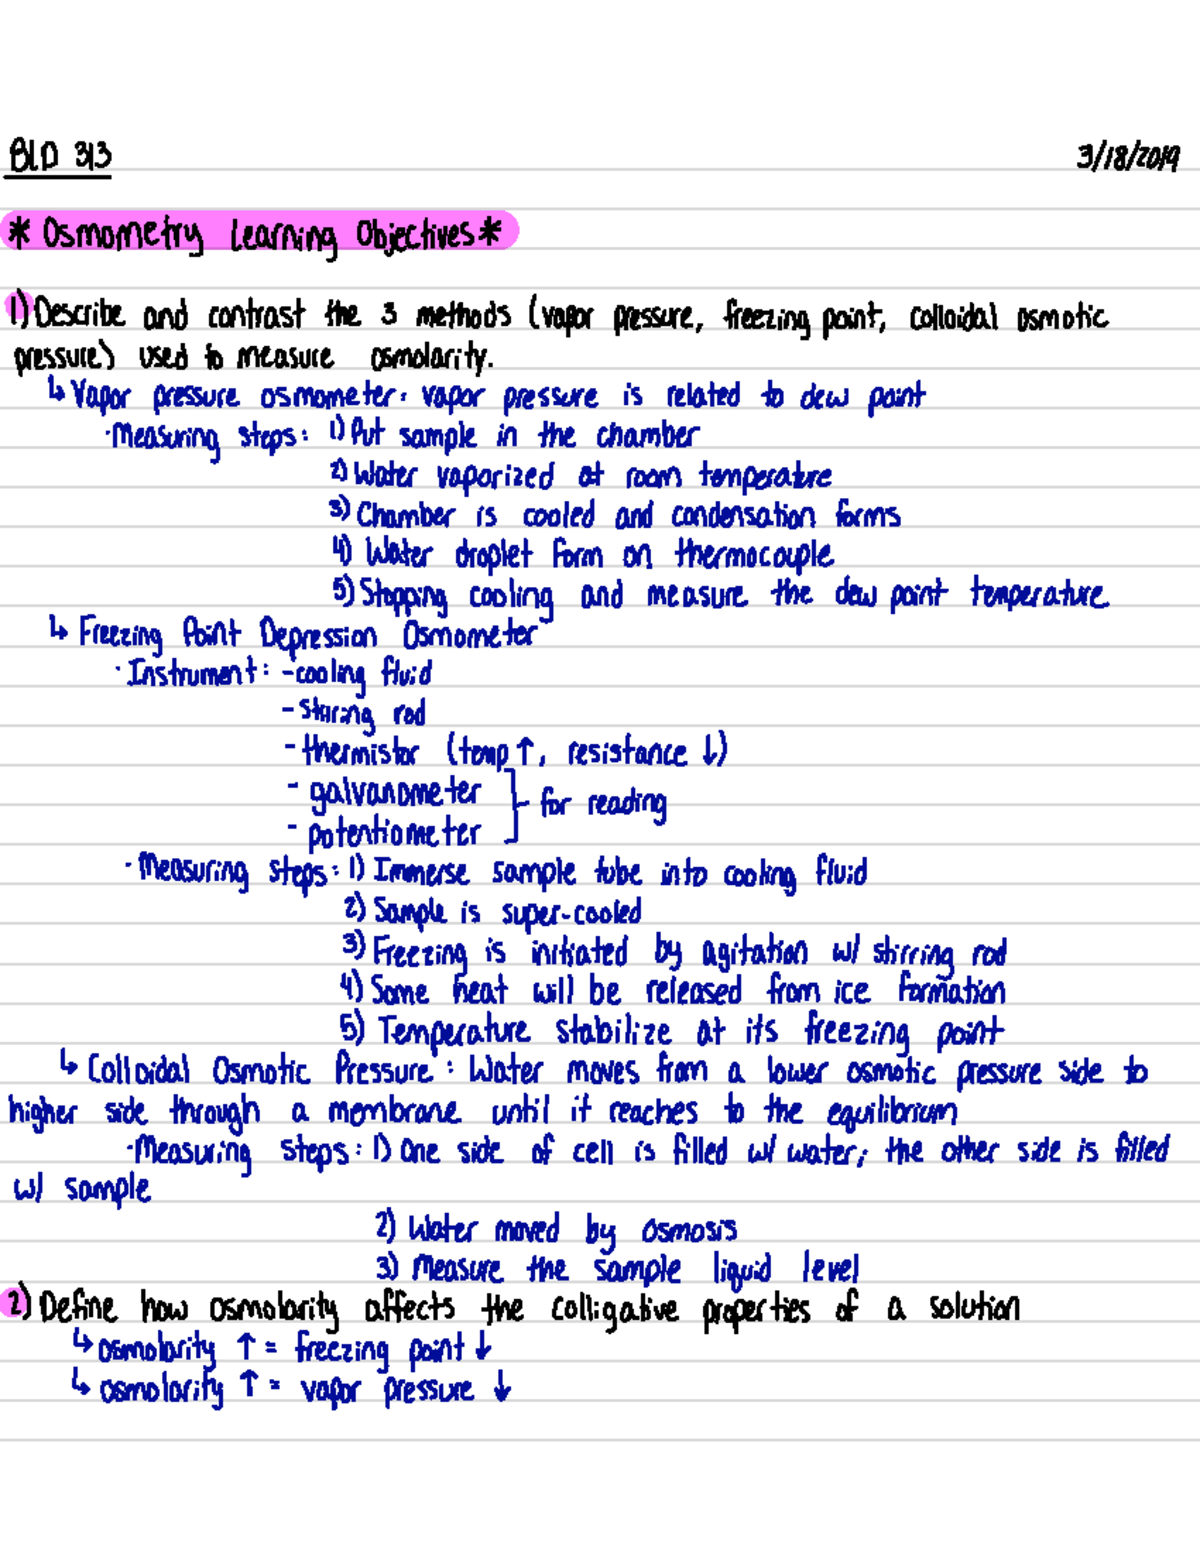 BLD 313 3/18/2019
* Osmometry Learning Objectives *
1) Describe and contrast the 3 methods (vapor pressure, freezing point, colloidal osmotic
pressure) used to measure osmolarity.
↳ Vapor pressure osmometer: vapor pressure is related to dew point
·Measuring steps: 1) Put sample in the chamber
2) Water vaporized at room temperature
3) Chamber is cooled and condensation forms
4) Water droplet form on thermocouple
5) Stopping cooling and measure the dew point temperature
↳ Freezing Point Depression Osmometer
· Instrument: - cooling fluid
- stiring rod
- thermistor (temp ↑, resistance ↓)
- galvanometer
- potentiometer } for reading
· Measuring steps: 1) Immerse sample tube into cooling fluid
2) Sample is super-cooled
3) Freezing is initiated by agitation w/ stirring rod
4) Some heat will be released from ice formation
5) Temperature stabilize at its freezing point
↳ Colloidal Osmotic Pressure: Water moves from a lower osmotic pressure side to
higher side through a membrane until it reaches to the equilibrium
·Measuring steps: 1) One side of cell is filled w/ water; the other side is filled
w/ sample
2) Water moved by osmosis
3) Measure the sample liquid level
2) Define how osmolarity affects the colligative properties of a solution
↳ osmolarity ↑ = freezing point ↓
↳ osmolarity ↑ = vapor pressure ↓